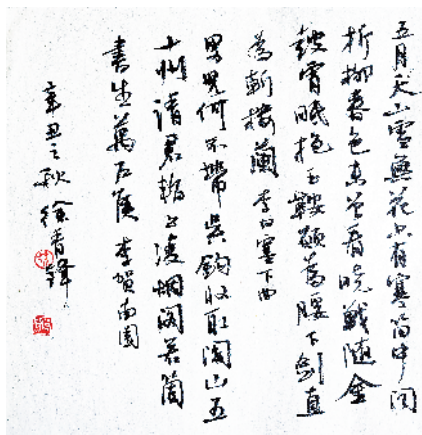 五月天山雪無花只有寒笛中闻
折柳春色未曾看晓戰随金
鼓宵眠抱玉鞍願為腰下劍直
為斬樓蘭 李白塞下曲
男児何不帶吳鈎收取関山五
十州請君暫上凌烟阁若箇
書生萬户侯 李賀南園
辛丑之秋徐青鋒